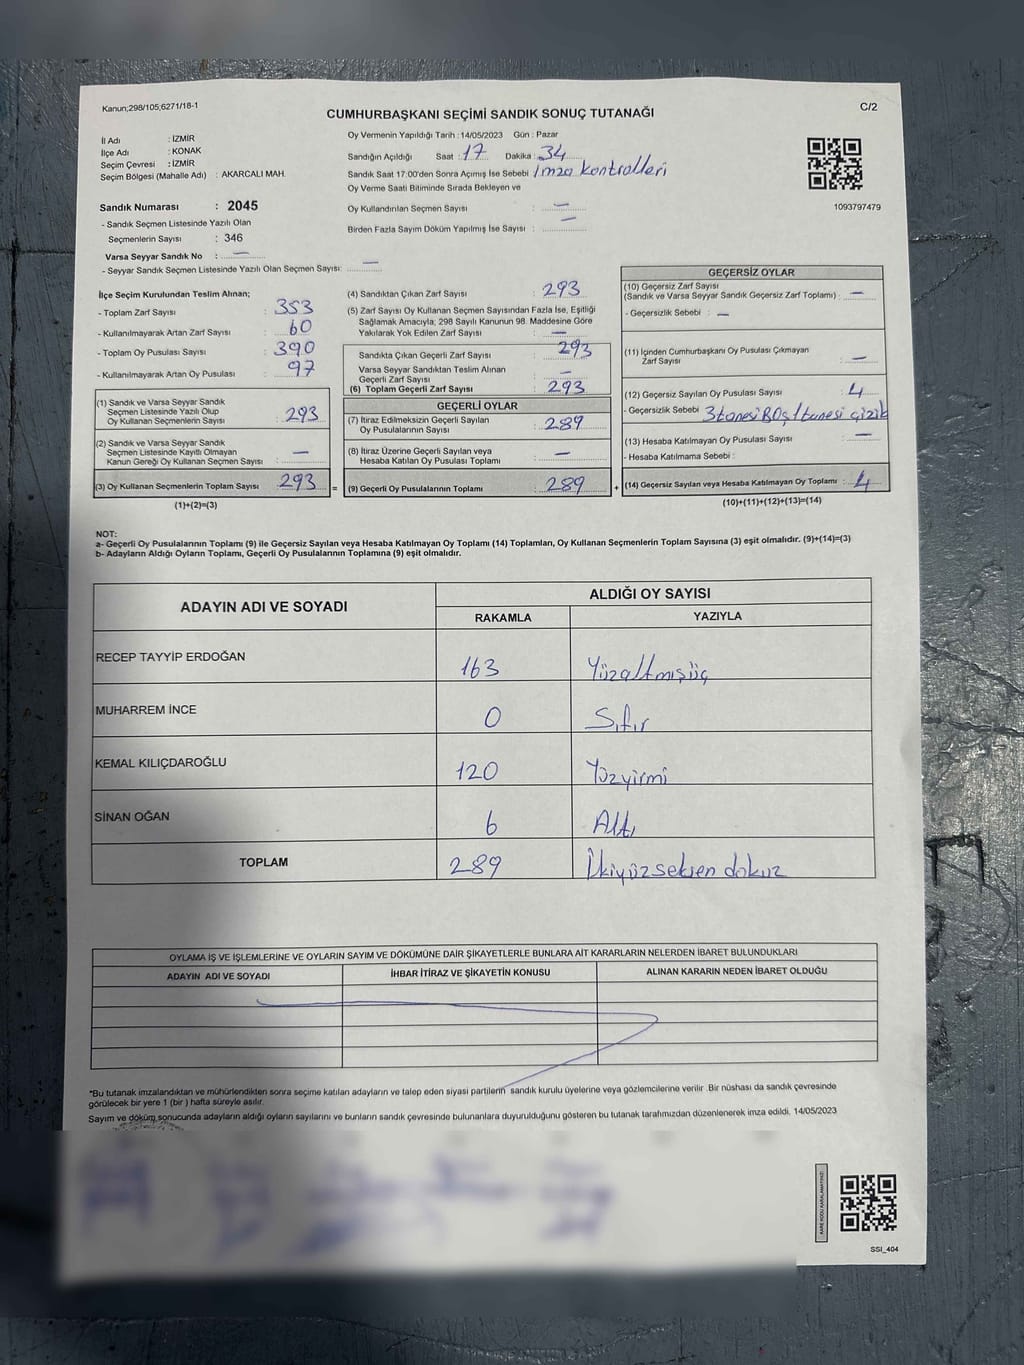 Kanun;298/105,6271/18-1
C/2
CUMHURBAŞKANI SEÇİMİ SANDIK SONUÇ TUTANAĞI
İl Adı : İZMİR
İlçe Adı : KONAK
Seçim Çevresi : İZMİR
Seçim Bölgesi (Mahalle Adı) : AKARCALI MAH.
Oy Vermenin Yapıldığı Tarih : 14/05/2023 Gün : Pazar
Sandığın Açıldığı Saat : 17 Dakika : 34
Sandık Saat 17:00'den Sonra Açımış İse Sebebi İmza kontrolleri
Oy Verme Saati Bitiminde Sırada Bekleyen ve
Oy Kullandırılan Seçmen Sayısı : —
Birden Fazla Sayım Döküm Yapılmış İse Sayısı : —
1093797479
Sandık Numarası : 2045
- Sandık Seçmen Listesinde Yazılı Olan
Seçmenlerin Sayısı : 346
Varsa Seyyar Sandık No : —
- Seyyar Sandık Seçmen Listesinde Yazılı Olan Seçmen Sayısı: —
İlçe Seçim Kurulundan Teslim Alınan;
- Toplam Zarf Sayısı : 353
- Kullanılmayarak Artan Zarf Sayısı : 60
- Toplam Oy Pusulası Sayısı : 390
- Kullanılmayarak Artan Oy Pusulası : 97
(1) Sandık ve Varsa Seyyar Sandık
Seçmen Listesinde Yazılı Olup
Oy Kullanan Seçmenlerin Sayısı : 293
(2) Sandık ve Varsa Seyyar Sandık
Seçmen Listesinde Kayıtlı Olmayan
Kanun Gereği Oy Kullanan Seçmen Sayısı : —
(3) Oy Kullanan Seçmenlerin Toplam Sayısı : 293 =
(1)+(2)=(3)
(4) Sandıktan Çıkan Zarf Sayısı : 293
(5) Zarf Sayısı Oy Kullanan Seçmen Sayısından Fazla İse, Eşitliği
Sağlamak Amacıyla, 298 Sayılı Kanunun 98. Maddesine Göre
Yakılarak Yok Edilen Zarf Sayısı : —
Sandıkta Çıkan Geçerli Zarf Sayısı : 293
Varsa Seyyar Sandıktan Teslim Alınan
Geçerli Zarf Sayısı : —
(6) Toplam Geçerli Zarf Sayısı : 293
GEÇERLİ OYLAR
(7) İtiraz Edilmeksizin Geçerli Sayılan
Oy Pusulalarının Sayısı : 289
(8) İtiraz Üzerine Geçerli Sayılan veya
Hesaba Katılan Oy Pusulası Toplamı : —
(9) Geçerli Oy Pusulalarının Toplamı : 289 +
GEÇERSİZ OYLAR
(10) Geçersiz Zarf Sayısı
(Sandık ve Varsa Seyyar Sandık Geçersiz Zarf Toplamı) : —
- Geçersizlik Sebebi : —
(11) İçinden Cumhurbaşkanı Oy Pusulası Çıkmayan
Zarf Sayısı : —
(12) Geçersiz Sayılan Oy Pusulası Sayısı : 4
- Geçersizlik Sebebi 3 tanesi Boş 1 tanesi çizik
(13) Hesaba Katılmayan Oy Pusulası Sayısı : —
- Hesaba Katılmama Sebebi :
(14) Geçersiz Sayılan veya Hesaba Katılmayan Oy Toplamı : 4
(10)+(11)+(12)+(13)=(14)
NOT:
a- Geçerli Oy Pusulalarının Toplamı (9) ile Geçersiz Sayılan veya Hesaba Katılmayan Oy Toplamı (14) Toplamları, Oy Kullanan Seçmenlerin Toplam Sayısına (3) eşit olmalıdır. (9)+(14)=(3)
b- Adayların Aldığı Oyların Toplamı, Geçerli Oy Pusulalarının Toplamına (9) eşit olmalıdır.
ADAYIN ADI VE SOYADI ALDIĞI OY SAYISI
RAKAMLA YAZIYLA
RECEP TAYYİP ERDOĞAN 163 Yüzaltmışüç
MUHARREM İNCE 0 Sıfır
KEMAL KILIÇDAROĞLU 120 Yüzyirmi
SİNAN OĞAN 6 Altı
TOPLAM 289 İkiyüzseksen dokuz
OYLAMA İŞ VE İŞLEMLERİNE VE OYLARIN SAYIM VE DÖKÜMÜNE DAİR ŞİKAYETLERLE BUNLARA AİT KARARLARIN NELERDEN İBARET BULUNDUKLARI
ADAYIN ADI VE SOYADI İHBAR İTİRAZ VE ŞİKAYETİN KONUSU ALINAN KARARIN NEDEN İBARET OLDUĞU
*Bu tutanak imzalandıktan ve mühürlendikten sonra seçime katılan adayların ve talep eden siyasi partilerin sandık kurulu üyelerine veya gözlemcilerine verilir .Bir nüshası da sandık çevresinde
görülecek bir yere 1 (bir ) hafta süreyle asılır.
Sayım ve döküm sonucunda adayların aldığı oyların sayılarını ve bunların sandık çevresinde bulunanlara duyurulduğunu gösteren bu tutanak tarafımızdan düzenlenerek imza edildi. 14/05/2023
KARE KODU KARALAMAYINIZ!
SSI_404